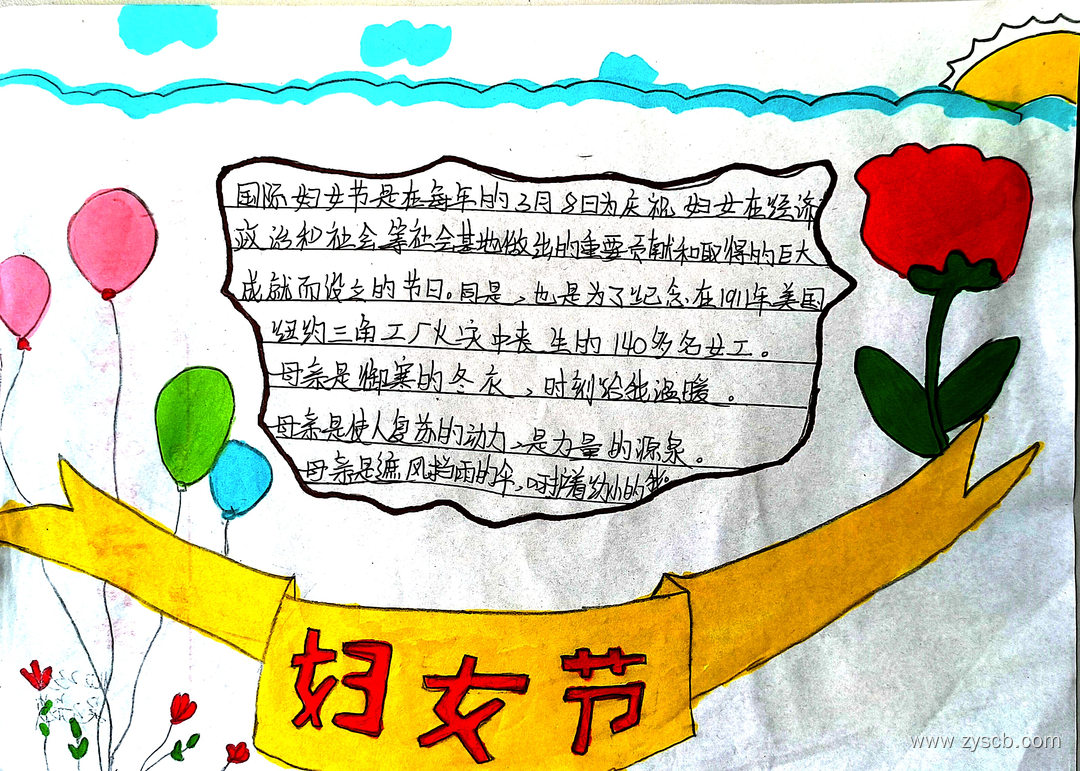 国际妇女节是在每年的3月8日为庆祝妇女在经济
政治和社会等社会基地做出的重要贡献和取得的巨大
成就而设立的节日。同是,也是为了纪念在1911年美国
纽约三角工厂火灾中丧生的140多名女工。
母亲是御寒的冬衣,时刻给我温暖。
母亲是使人复苏的动力,是力量的源泉。
母亲是遮风挡雨的伞,呵护着幼小的我。
妇女节
www.zyscb.com